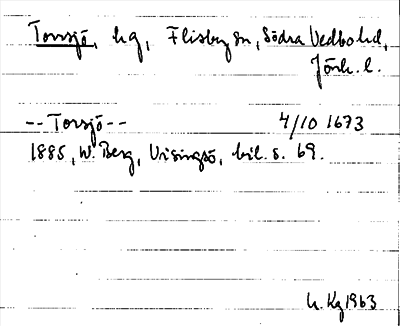 Torsjö, hg, Flisby sn, Södra Vedbo hd,
Jönk. l.
--Torsjö-- 4/10 1673
1885, W. Berg, Visingsö, bil. s. 69.
Kg 1963